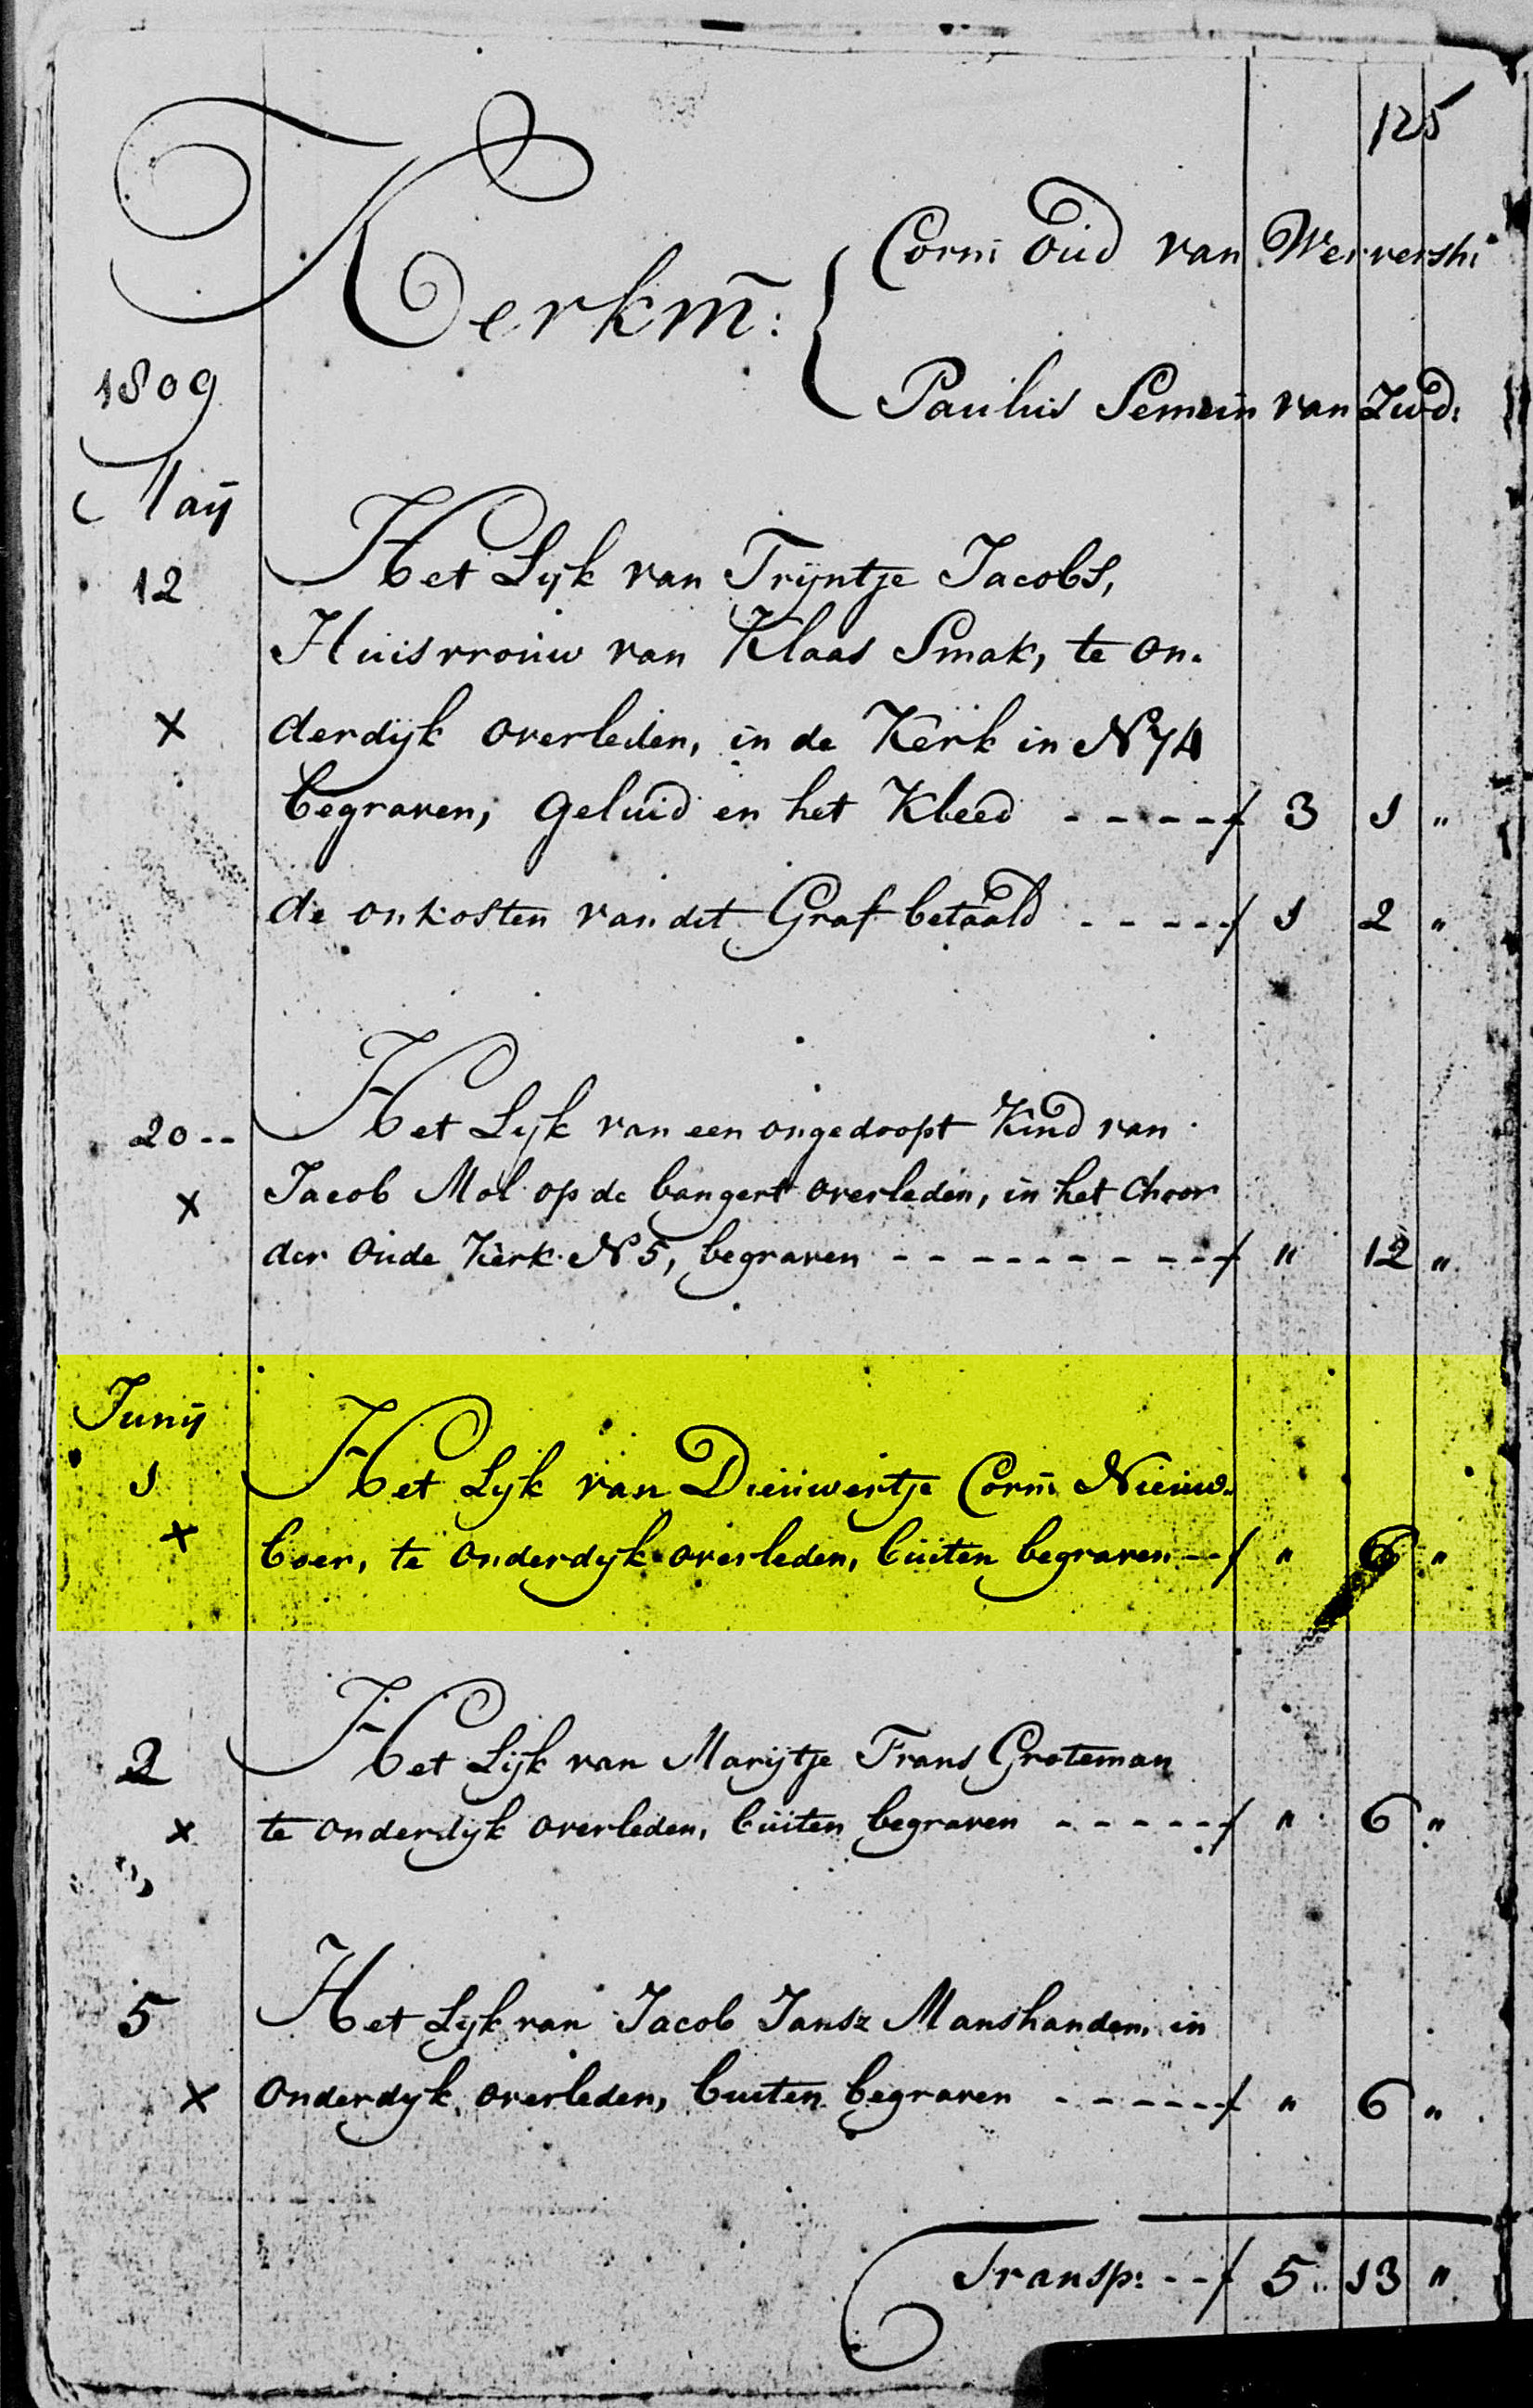 125
Kerkm̄: { Corn̄: Oud van Wervershi
Paulus Semein van Zwd:
1809
Maij
12 Het Lijk van Trijntje Jacobs,
Huisvrouw van Klaas Smak, te on-
x derdijk overleden, in de Kerk in N 74
begraven, geluid en het Kleed - - - - - f 3 1 "
de onkosten van dit Graf betaald - - - - f 1 2 "
20 - - Het Lijk van een ongedoopt Kind van
x Jacob Mol op de bangert overleden, in het Choor
der Oude Kerk N 5, begraven - - - - - - - - - - f " 12 "
Junij
1 Het Lijk van Dieuwertje Corn̄: Nieuw-
x boer, te Onderdijk overleden, buiten begraven - - f " 6 "
2 Het Lijk van Marijtje Frans Groteman
x te onderdijk overleden, buiten begraven - - - - - f " 6 "
5 Het Lijk van Jacob Jansz Manshanden, in
x Onderdijk overleden, buiten begraven - - - - - - f " 6 "
Transp: - - f 5 13 "